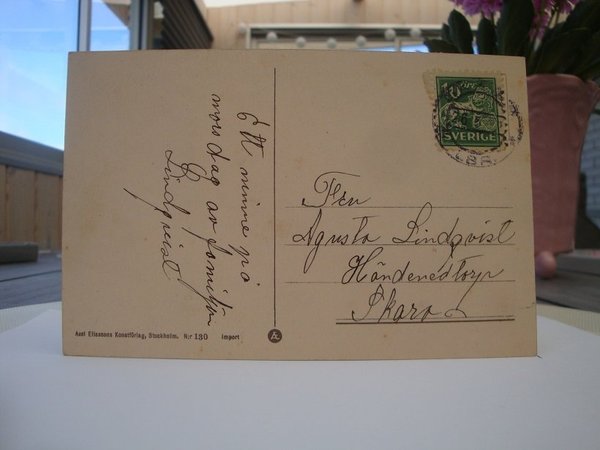 Ett minne på
mors dag av familjen
Lindqvist
SVERIGE
Fru
Agusta Lindqvist
Händenedtorp
Skara
Axel Eliassons Konstförlag, Stockholm. N:r 130 Import
Æ